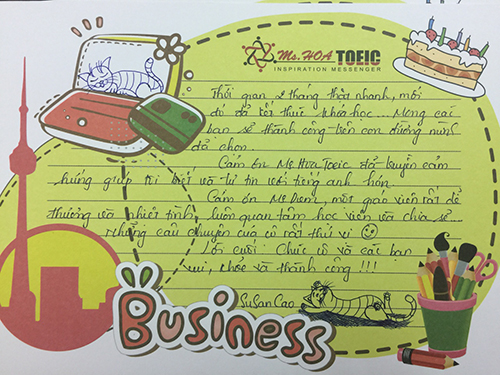 Ms. HOA TOEIC
INSPIRATION MESSENGER
Thời gian 2 tháng thật nhanh, mới
đó đã kết thúc khóa học... Mong các
bạn sẽ thành công trên con đường mình
đã chọn.
Cảm ơn Ms Hoa Toeic đã truyền cảm
hứng giúp tôi biết và tự tin với tiếng anh hơn.
Cảm ơn Ms Diem, một giáo viên rất dễ
thương và nhiệt tình, luôn quan tâm học viên và chia sẻ
những câu chuyện của cô rất thú vị
Lời cuối: Chúc cô và các bạn
vui, khỏe và thành công!!!
SuSan Cao
Business